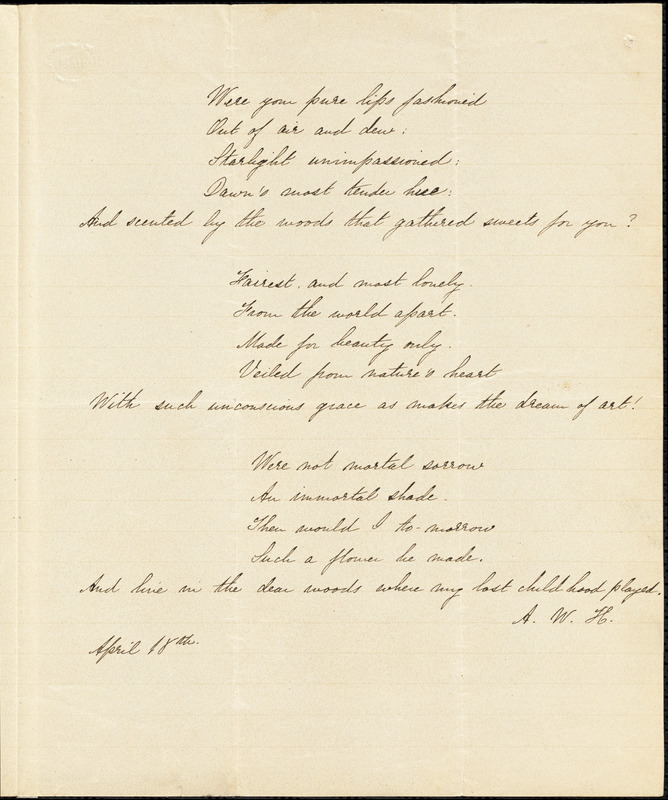 Were your pure lips fashioned
Out of air and dew:
Starlight unimpassioned:
Dawn's most tender hue:
And scented by the woods that gathered sweets for you?
Fairest, and most lonely.
From the world apart.
Made for beauty only.
Veiled from nature's heart
With such unconscious grace as makes the dream of art!
Were not mortal sorrow
An immortal shade.
Then would I to-morrow
Such a flower be made.
And live in the dear woods where my lost childhood played.
A. W. H.
April 18th.